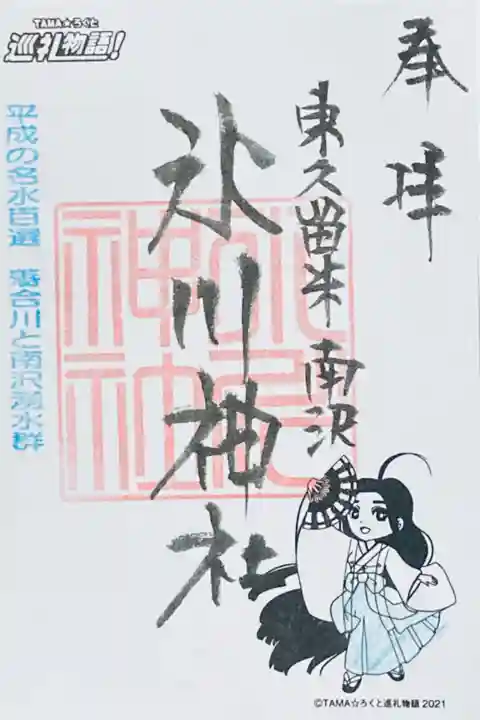 奉拝
東久留米 南沢
氷川神社
氷川
神社
TAMA☆ろくと
巡礼物語!
平成の名水百選 落合川と南沢湧水群
©TAMA☆ろくと巡礼物語 2021